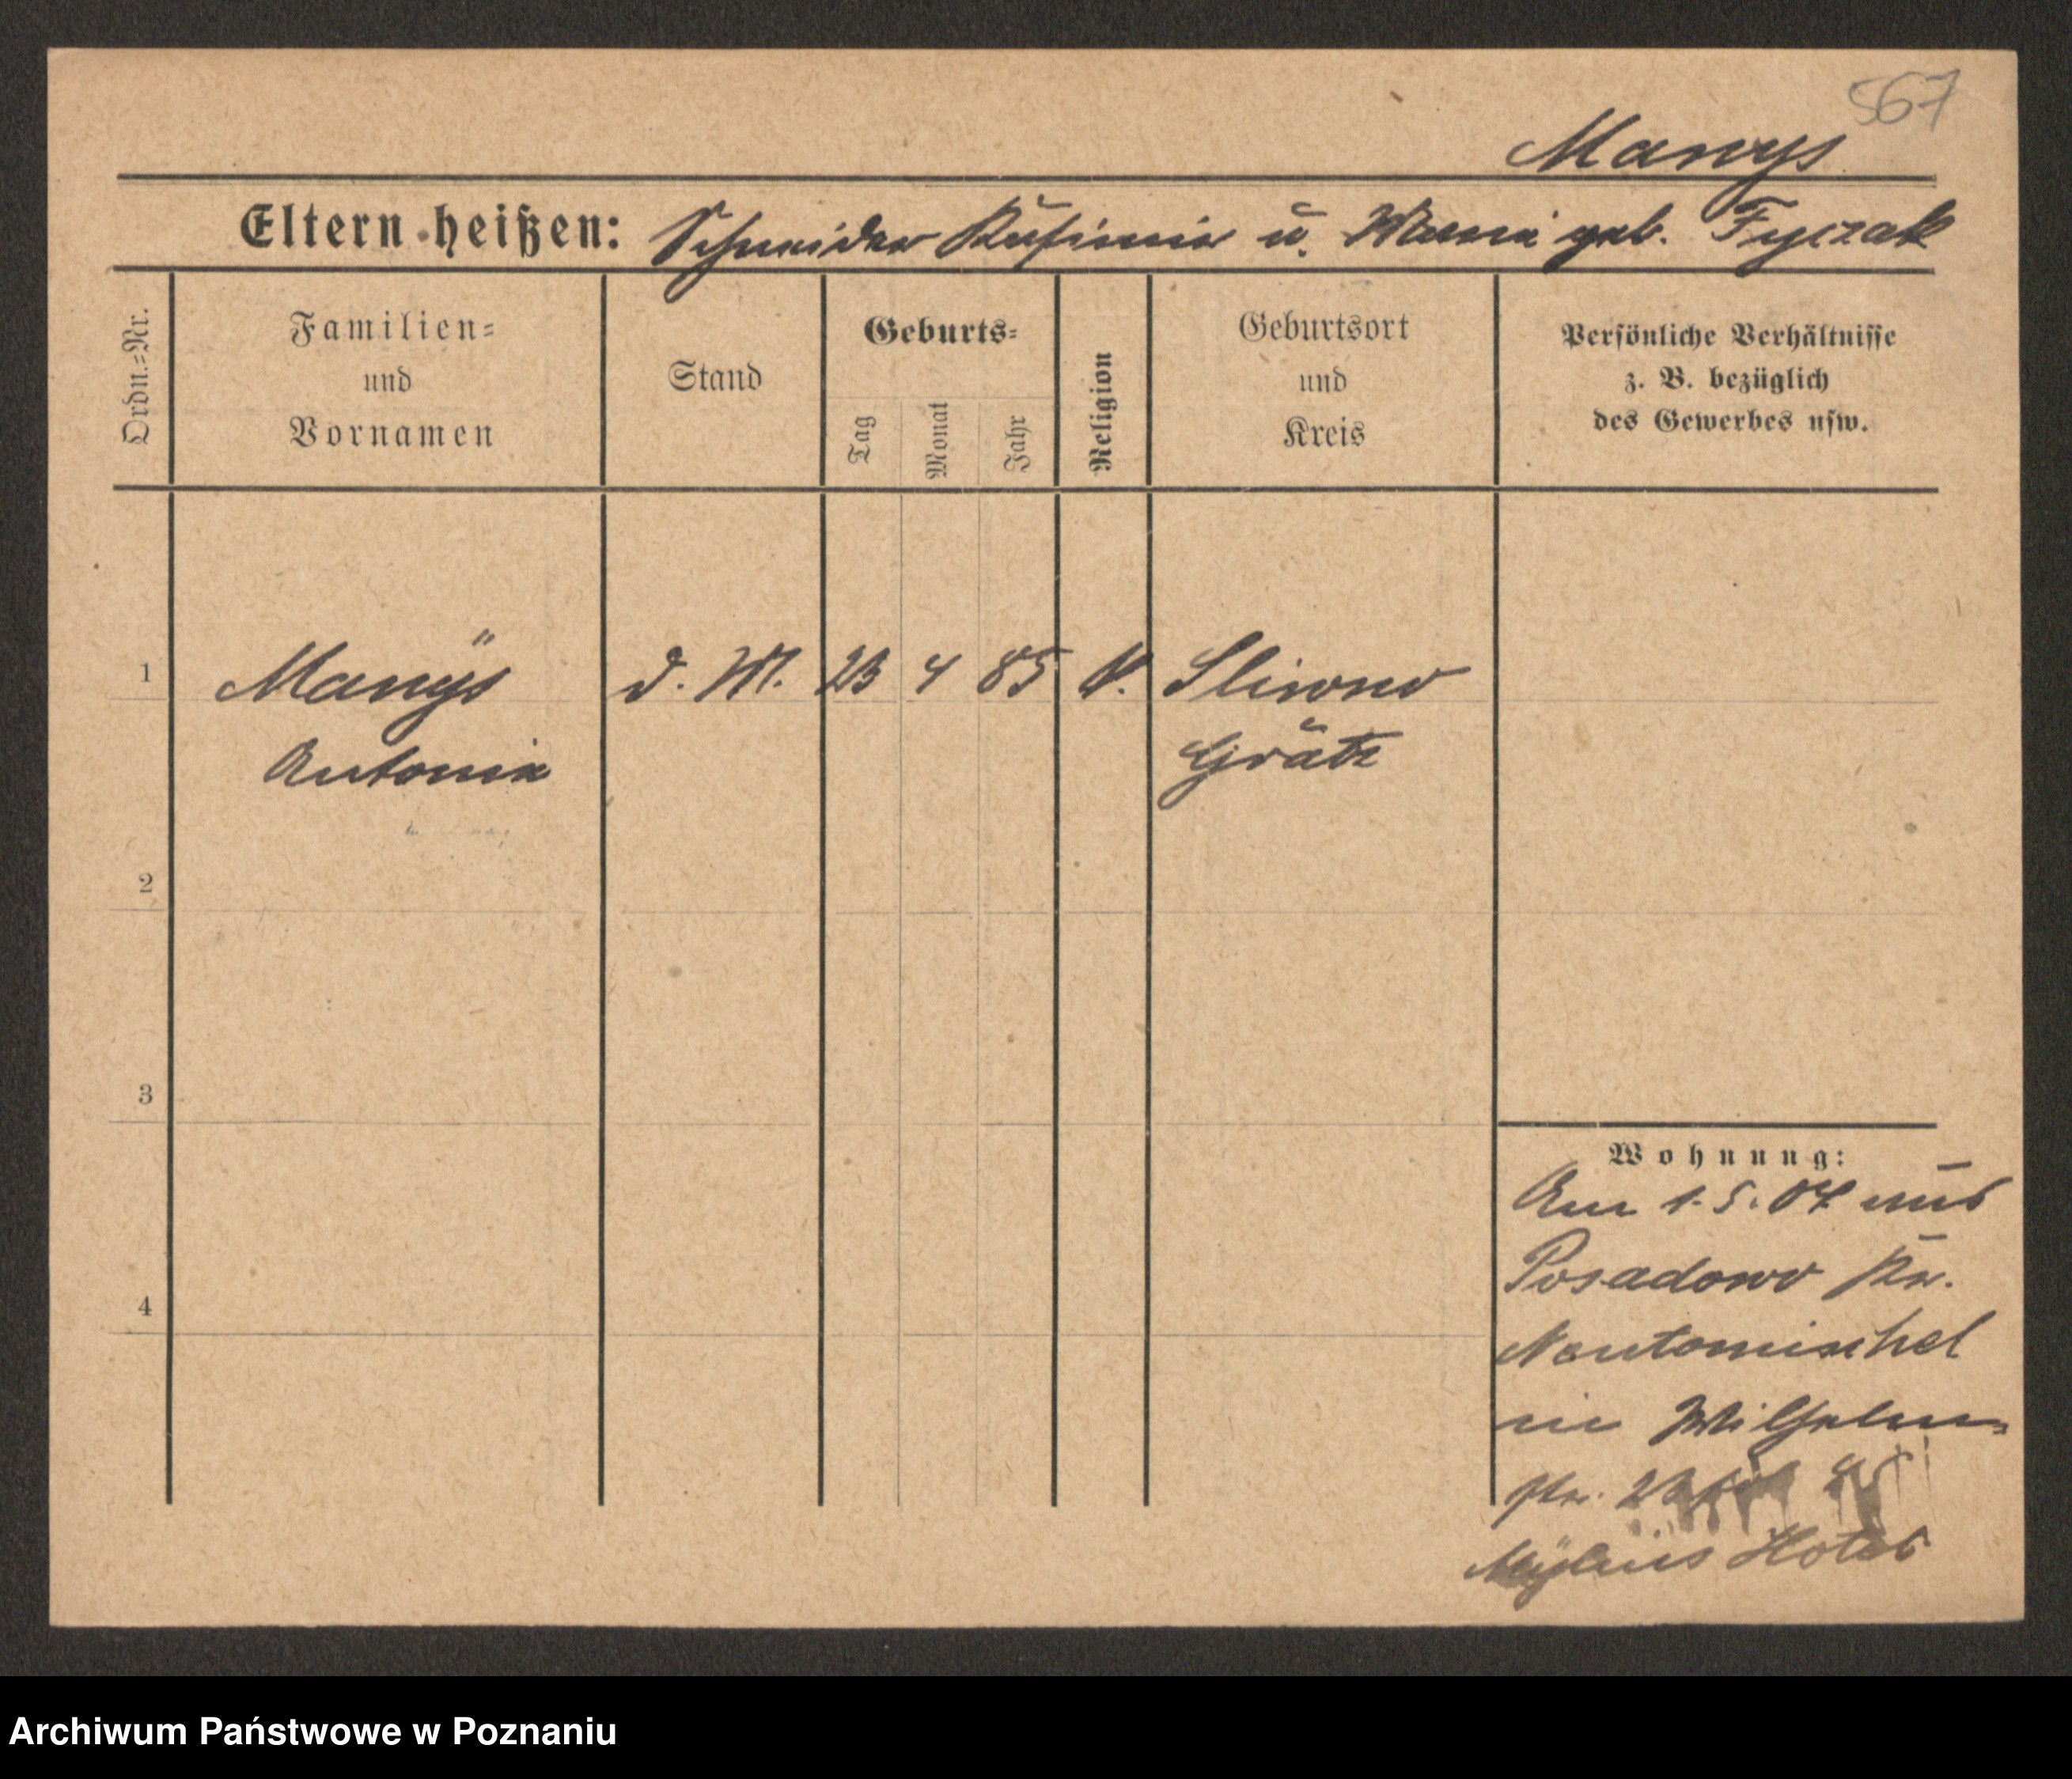 567
Manys
Eltern heißen: Schneider Kasimir u. Maria geb. Fyczak
Ordn.=Nr.
Familien=
und
Vornamen
Stand
Geburts=
Tag
Monat
Jahr
Religion
Geburtsort
und
Kreis
Persönliche Verhältnisse
z. B. bezüglich
des Gewerbes usw.
1 Manÿs d. M. 23 4 85 k. Sliwno
Antonia Grätz
2
3
4
Wohnung:
Am 1.5.04 aus
Posadowo Kr.
Neutomischel
in Wilhelm=
str. 23
Mÿlius Hotel
Archiwum Państwowe w Poznaniu